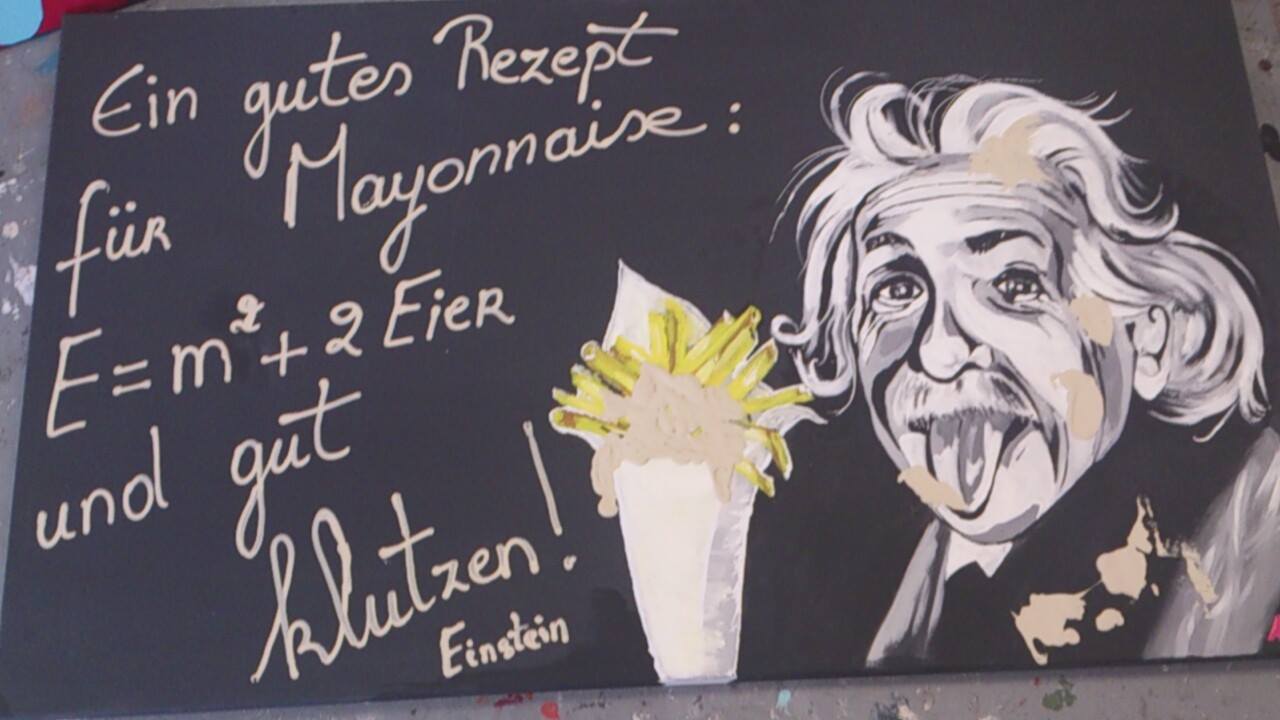 Ein gutes Rezept
für Mayonnaise:
E=m²+2 Eier
und gut
klutzen!
Einstein